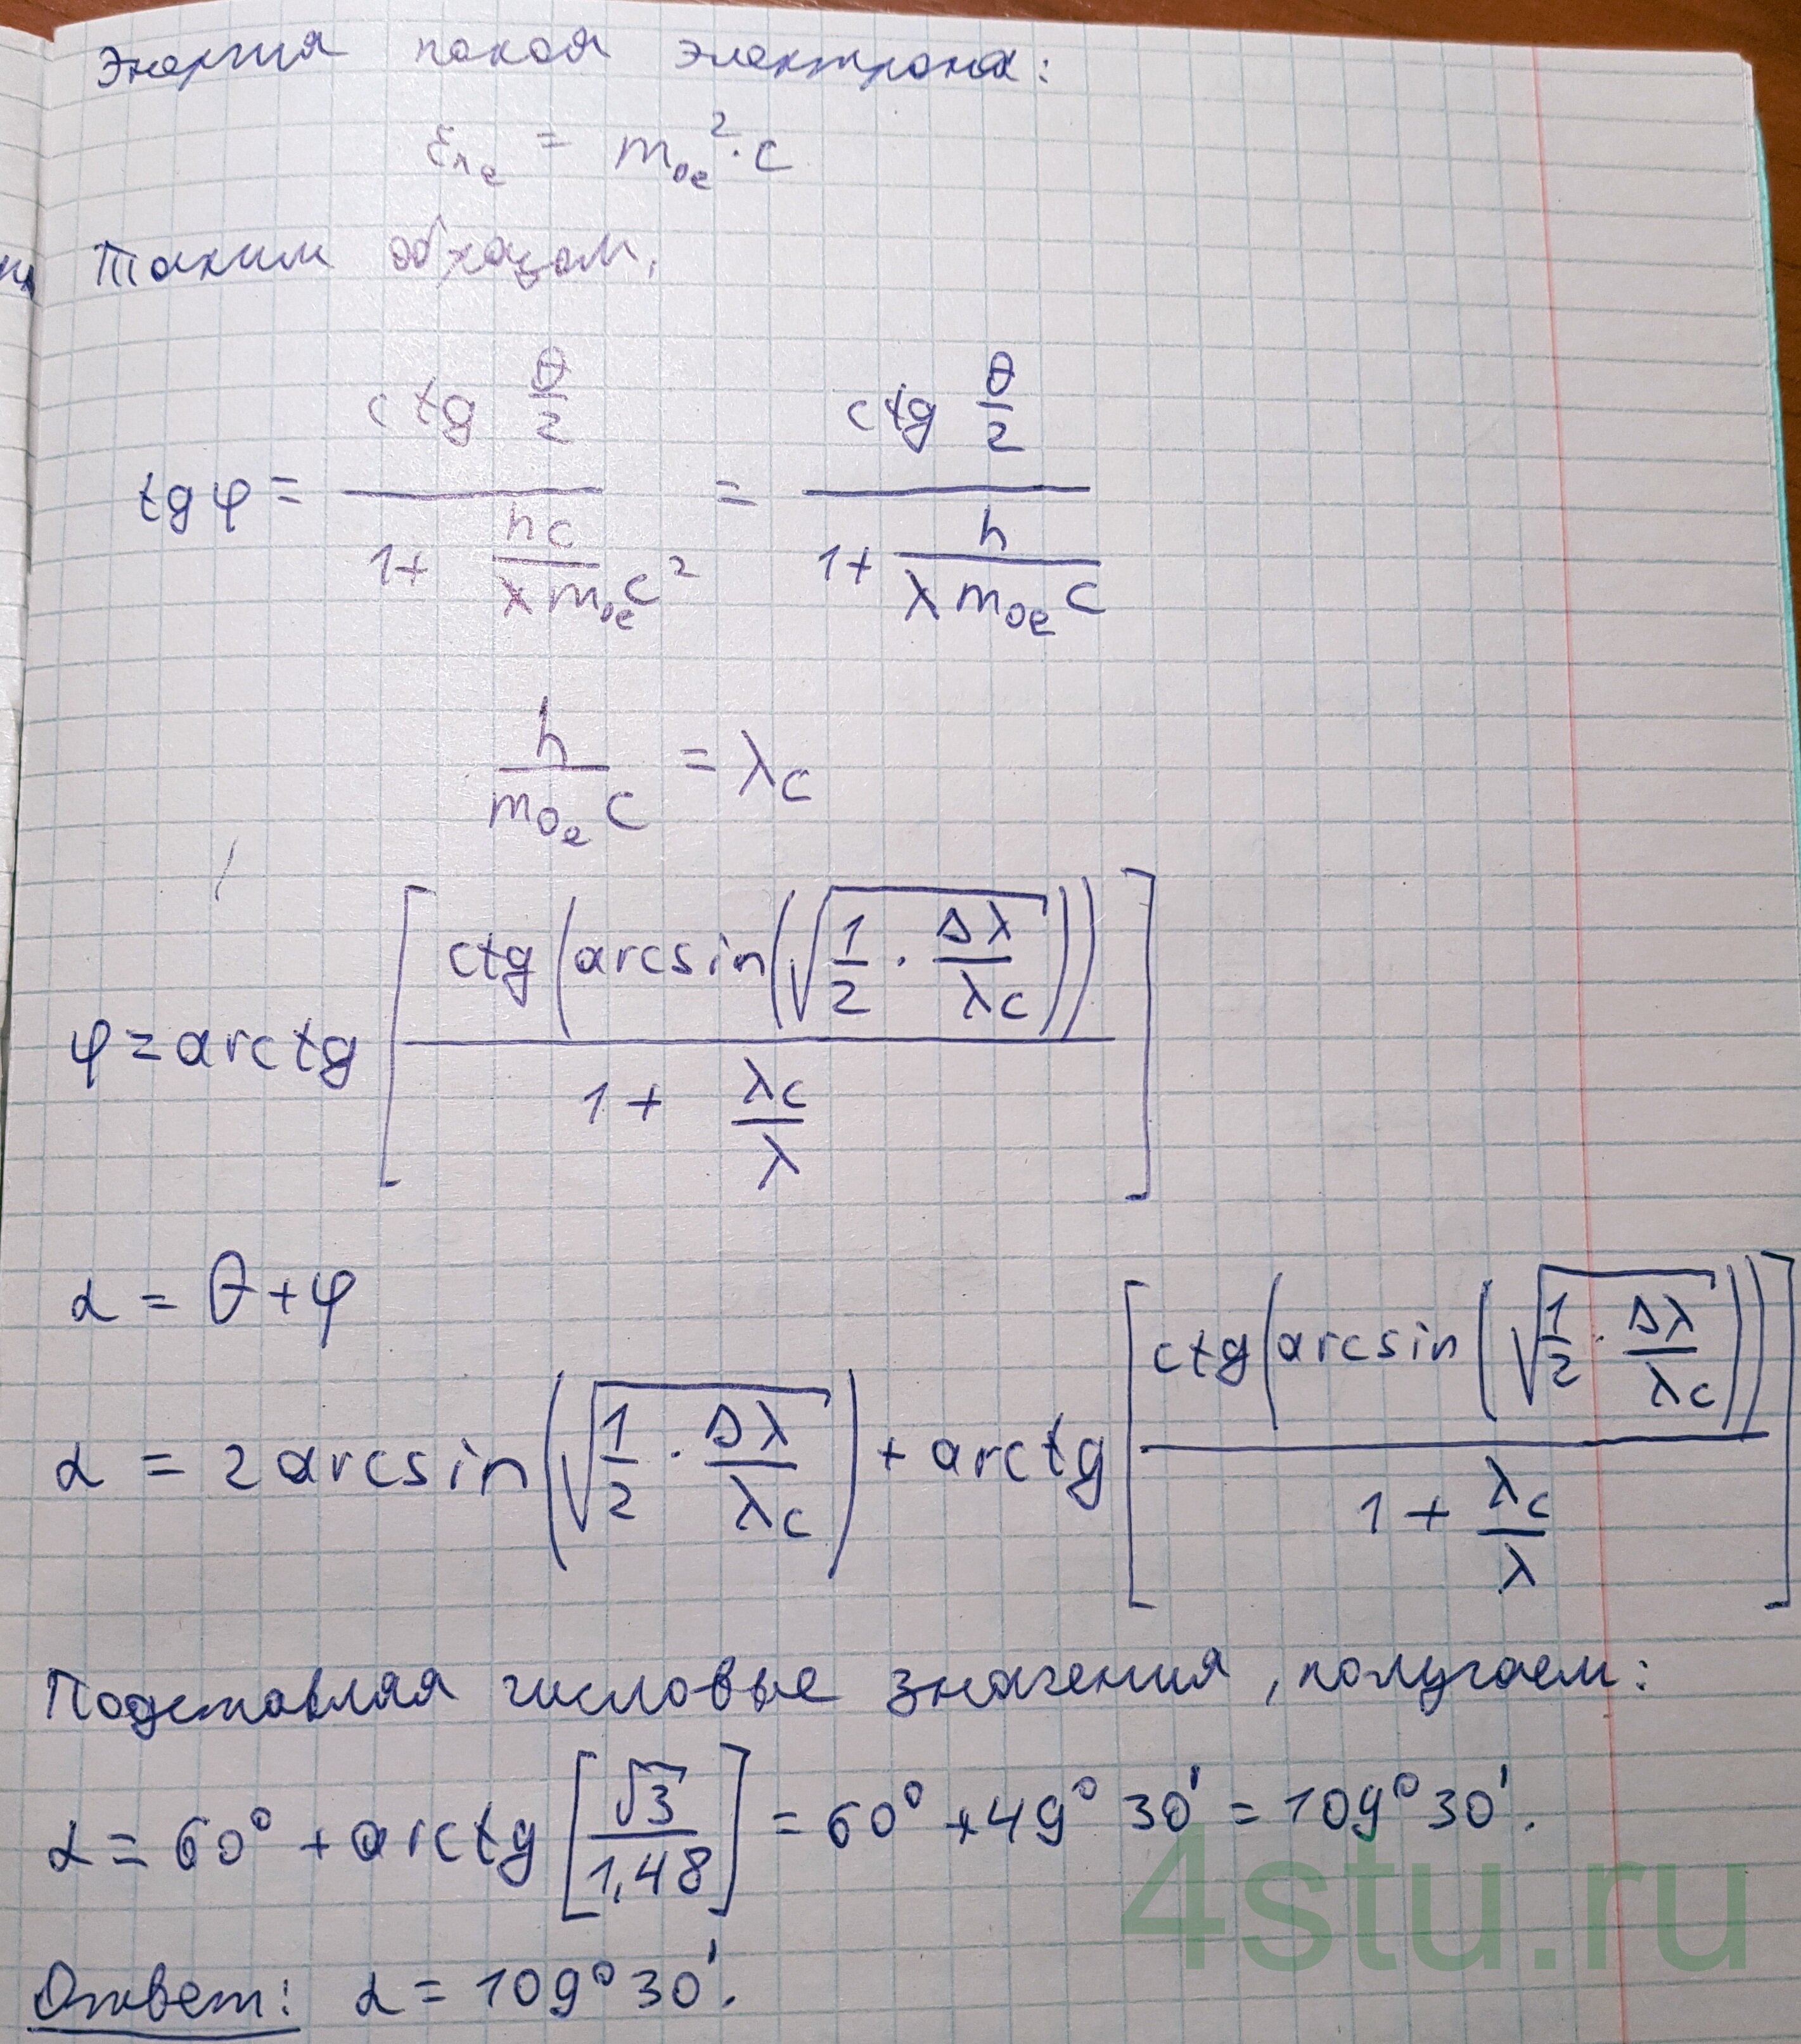 Энергия покоя электрона:
ε_{п_e} = m_{0e}^2 · c
Таким образом,
tg φ = \frac{ctg \frac{θ}{2}}{1 + \frac{hc}{λ m_{0e} c^2}} = \frac{ctg \frac{θ}{2}}{1 + \frac{h}{λ m_{0e} c}}
\frac{h}{m_{0e} c} = λ_c
φ = arctg [\frac{ctg(arcsin(\sqrt{\frac{1}{2} · \frac{Δλ}{λ_c}}))}{1 + \frac{λ_c}{λ}}]
α = θ + φ
α = 2 arcsin(\sqrt{\frac{1}{2} · \frac{Δλ}{λ_c}}) + arctg [\frac{ctg(arcsin(\sqrt{\frac{1}{2} · \frac{Δλ}{λ_c}}))}{1 + \frac{λ_c}{λ}}]
Подставляя числовые значения, получаем:
α = 60° + arctg [\frac{\sqrt{3}}{1,48}] = 60° + 49° 30' = 109° 30'.
Ответ: α = 109° 30'.
4stu.ru